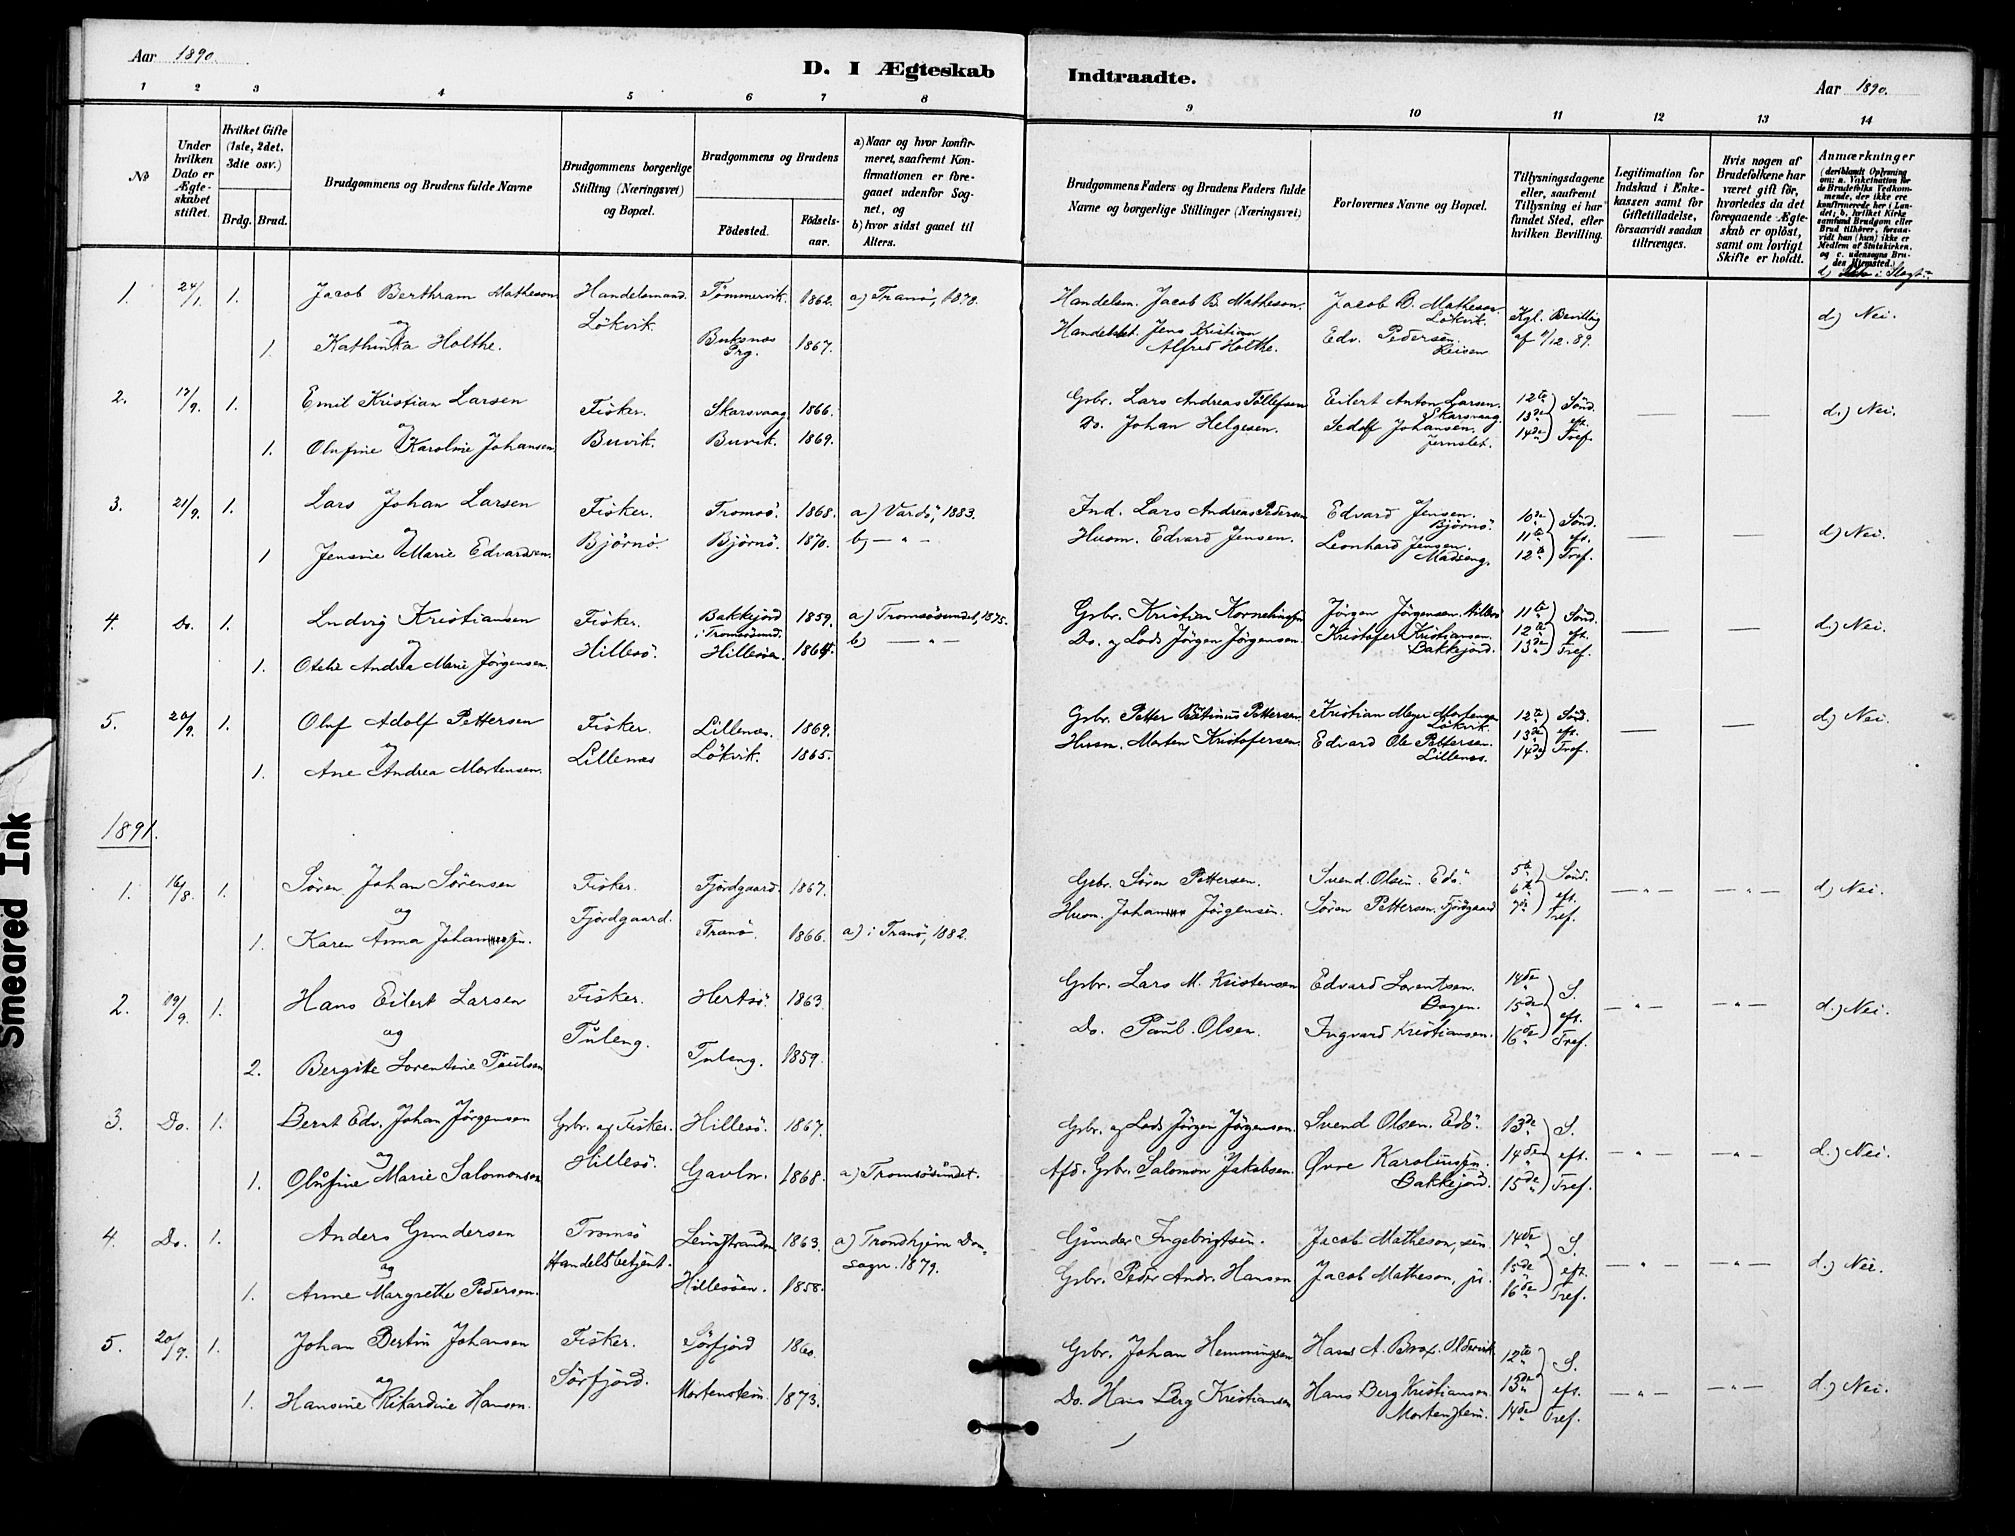 Aar 1890.
D. I Ægteskab
Indtraadte.
Aar 1890.
1 2 3 4 5 6 7 8 9 10 11 12 13 14
№
Under hvilken Dato er Ægteskabet stiftet.
Hvilket Gifte (1ste, 2det, 3die osv.)
Brdg. Brud.
Brudgommens og Brudens fulde Navne
Brudgommens borgerlige Stilling (Næringsvei) og Bopæl.
Brudgommens og Brudens
Fødested.
Fødselsaar.
a) Naar og hvor konfirmeret, saafremt Konfirmationen er foregaaet udenfor Sognet, og
b) hvor sidst gaaet til Alters.
Brudgommens Faders og Brudens Faders fulde Navne og borgerlige Stillinger (Næringsvei)
Forlovernes Navne og Bopæl.
Tillysningsdagene eller, saafremt Tillysning ei har fundet Sted, efter hvilken Bevilling.
Legitimation for Indskud i Enkekassen samt for Giftetilladelse, forsaavidt saadan tiltrænges.
Hvis nogen af Brudefolkene har været gift før, hvorledes da det foregaaende Ægteskab er opløst, samt om lovligt Skifte er holdt.
Anmærkninger (deriblandt Oplysning om: a. Vakcination for de Brudefolks Vedkommende, der ikke ere konfirmerede her i Landet; b. hvilket Kirkesamfund Brudgom eller Brud tilhører, forsaavidt han (hun) ikke er Medlem af Statskirken, og c. udensogns Brudes Hjemsted.)
1. 24/1. 1. Jacob Berthram Matheson Handelsmand. Tømmervik. 1862. a) Tranö, 1878. Handelsm. Jacob B. Matheson. Jacob B. Matheson. Løkvik. Kgl. Bevillig d) Nei.
og Løkvik.
1. Kathinka Holthe. Buksnes Prg. 1867. Handelsbet. Jens Kristian Alfred Holthe. Edv. Pedersen. Leisen af 11/12. 89.
2. 17/9. 1. Emil Kristian Larsen Fisker. Skarsvaag 1866. Gbr. Lars Andreas Tøllefsen Eilert Anton Larsen. Skarsvaag. 12te 13de 14de Sønd. eft. Tref. — — d.) Nei.
og
1. Olufine Karoline Johansen Buvik. Buvik. 1869. Do. Johan Helgesen. Sedolf Johansen. Jernslet.
3. 21/9. 1. Lars Johan Larsen Fisker. Tromsö. 1868. a) Vardö, 1883. Ind. Lars Andreas Pedersen Edvard Jensen. Bjørnö. 10de 11te 12te Sønd. eft. Tref. — — d) Nei.
og
1 Jensine Marie Edvardsen. Bjørnö. Bjørnö. 1870. b) — " — Husm. Edvard Jensen. Leonhard Jensen. Madseng.
4. Do. 1. Ludvig Kristiansen Fisker. Bakkejord i Tromsösund. 1859. a) Tromsösundet, 1875. Gbr. Kristian Korneliussen Jørgen Jørgensen. Hillesö 11te 12te 13de Sønd. eft. Tref. — — d.) Nei.
og
1. Otelie Andrea Marie Jørgensen. Hillesö. Hillesöen. 1864. b) — " — Do. og Lods Jørgen Jørgensen. Kristofer Kristiansen. Bakkejord.
5. 20/9. 1. Oluf Adolf Pettersen Fisker. Lillenes. 1869. Gbr. Petter Petinus Pettersen. Kristian Meyer Mortensen Løkvik. 12te 13de 14de Sønd. eft. Tref. — — d.) Nei.
og
1. Ane Andrea Mortensen. Lillenes Løkvik. 1865. Husm. Morten Kristofersen. Edvard Ole Pettersen. Lillenes.
1891.
1. 16/8. 1. Søren Johan Sørensen Fisker. Fjordgaard. 1867. Gbr. Søren Pettersen. Svend Olsen. Edö. 5te 6te 7de Sønd. eft. Tref. — " — — " — d) Nei.
og Fjordgaard.
1. Karen Anna Johansen. Tranö. 1866. a) i Tranö, 1882. Husm. Johan Jørgensen. Søren Pettersen. Fjordgaard
2. 19/9. 1. Hans Eilert Larsen Fisker. Hertsö. 1863. Gbr. Lars M. Kristensen Edvard Lorentsen. Bogen. 14de 15de 16de S. eft. Tref. — " — — " — d.) Nei.
og Tuleng.
2. Bergitte Lorentine Paulsen Tuleng. 1859. Do. Paul Olsen. Ingvard Kristiansen.
3. Do. 1. Bernt Edv. Johan Jørgensen Gbr. og Fisker. Hillesö. 1867. Gbr. og Lods Jørgen Jørgensen. Svend Olsen. Edö 13de 14de 15de S. eft. Tref. — " — — " — d.) Nei.
og Hillesö.
1. Olufine Marie Salomonsen Gavln. 1868. a) Tromsösundet. Afd. Gbr. Salomon Jakobsen. Øvre Karoliussen. Bakkejord.
4. Do. 1. Anders Gundersen Tromsö Leinstranden 1863. a) Trondhjem Domsogn. 1879. Gunder Ingebrigtsen. Jacob Matheson, sen. 14de 15de 16de S. eft. Tref. — " — — " — d.) Nei.
og Handelsbetjent.
1. Anne Margrethe Pedersen. Hillesöen. 1858. Gbr. Peder Andr. Hansen Jacob Matheson, jr.
5. 20/9. 1. Johan Bertin Johansen Fisker. Sörfjord 1860. Gbr. Johan Hemmingsen Hans A. Brox. Oldervik 12te 13de 14de S. eft. Tref. — " — — " — d.) Nei.
og Sörfjord.
1. Hansine Rikardine Hansen. Mortenstein. 1873. Do. Hans Berg Kristiansen Hans Berg Kristiansen Mortenstein.
Smeared Ink